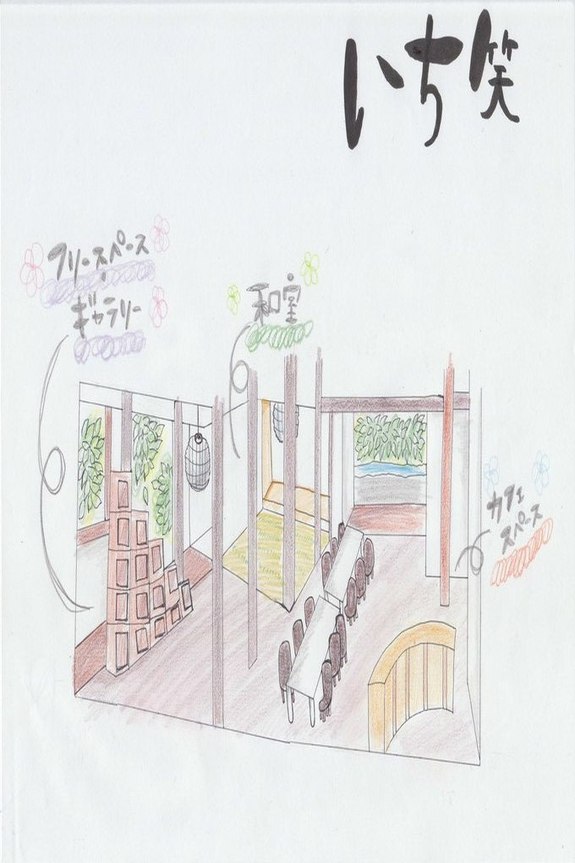 いち笑
フリースペース
ギャラリー
和室
カフェ
スペース